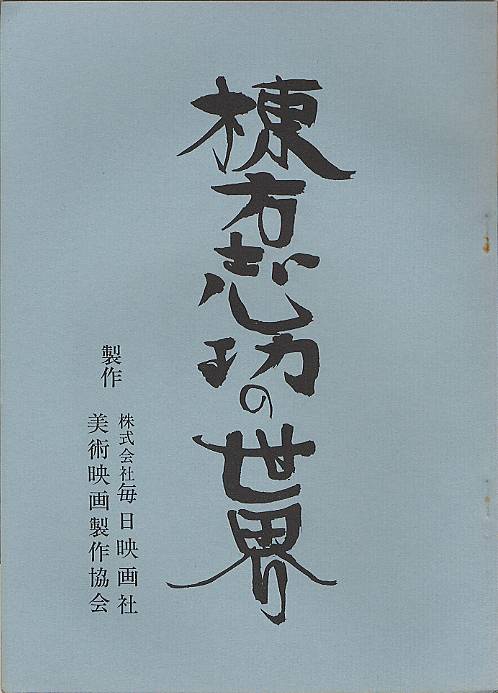 棟方志功の世界
製作
株式会社毎日映画社
美術映画製作協会